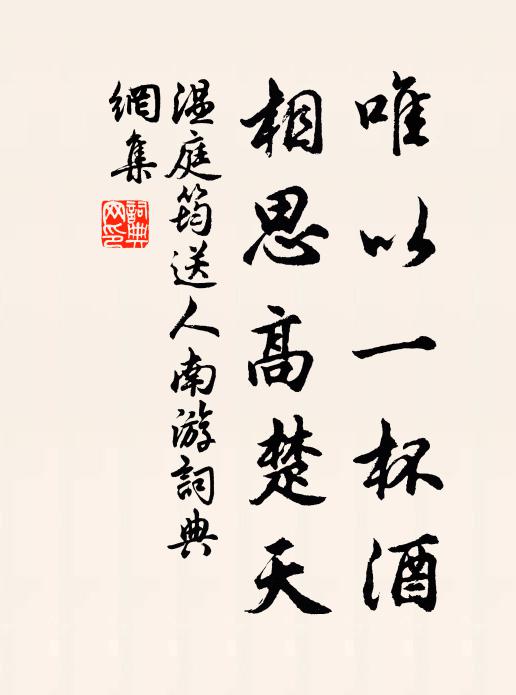 唯以一杯酒
相思高楚天
温庭筠送人南游詞典
網集
詞典
网印